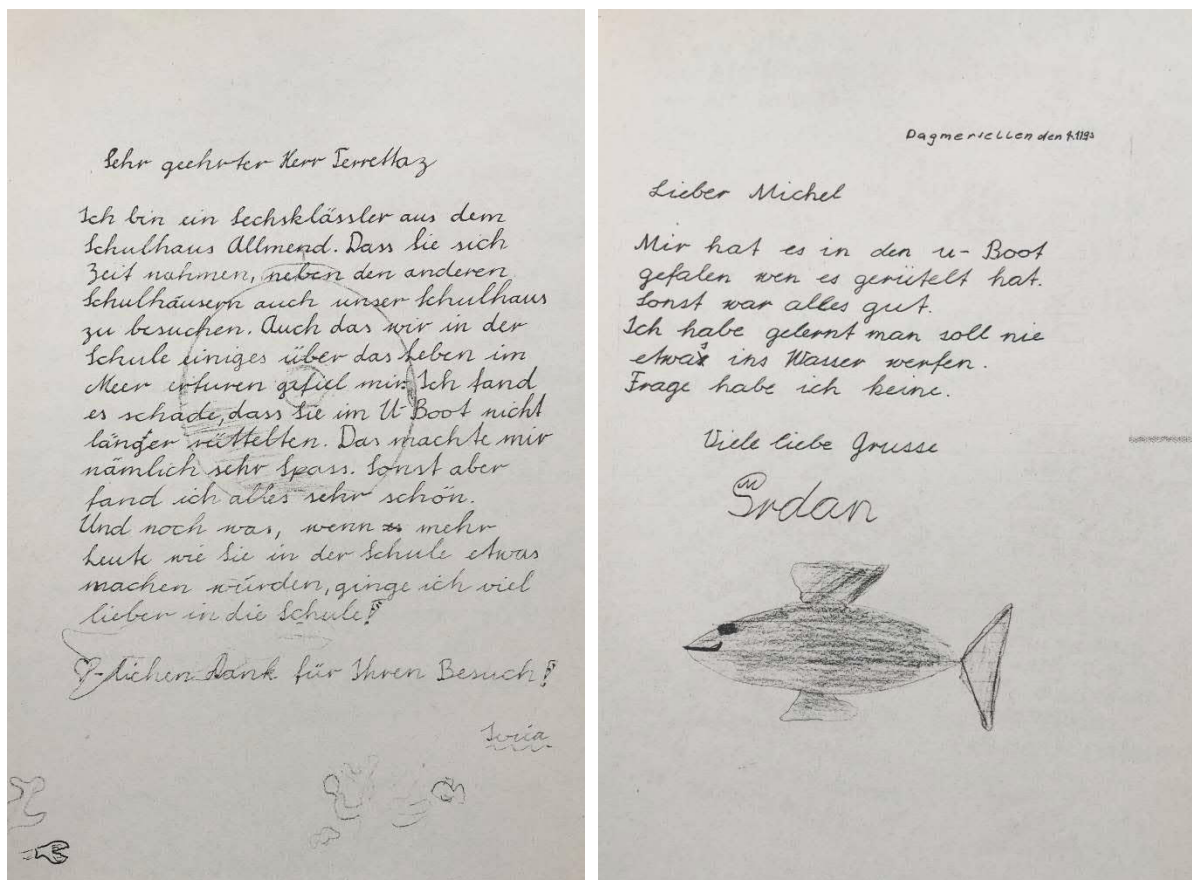 Sehr geehrter Herr Terrettaz
Ich bin ein Sechsklässler aus dem
Schulhaus Allmend. Dass Sie sich
Zeit nahmen, neben den anderen
Schulhäusern auch unser Schulhaus
zu besuchen. Auch das wir in der
Schule einiges über das Leben im
Meer erfuren gefiel mir. Ich fand
es schade, dass Sie im U-Boot nicht
länger rüttelten. Das machte mir
nämlich sehr Spass. Sonst aber
fand ich alles sehr schön.
Und noch was, wenn mehr
Leute wie Sie in der Schule etwas
machen würden, ginge ich viel
lieber in die Schule!
-lichen Dank für Ihren Besuch!
Dagmersellen den
Lieber Michel
Mir hat es in den u-Boot
gefalen wen es gerütelt hat.
Sonst war alles gut.
Ich habe gelernt man soll nie
etwas ins Wasser werfen.
Frage habe ich keine.
Viele liebe Grusse
Srdan